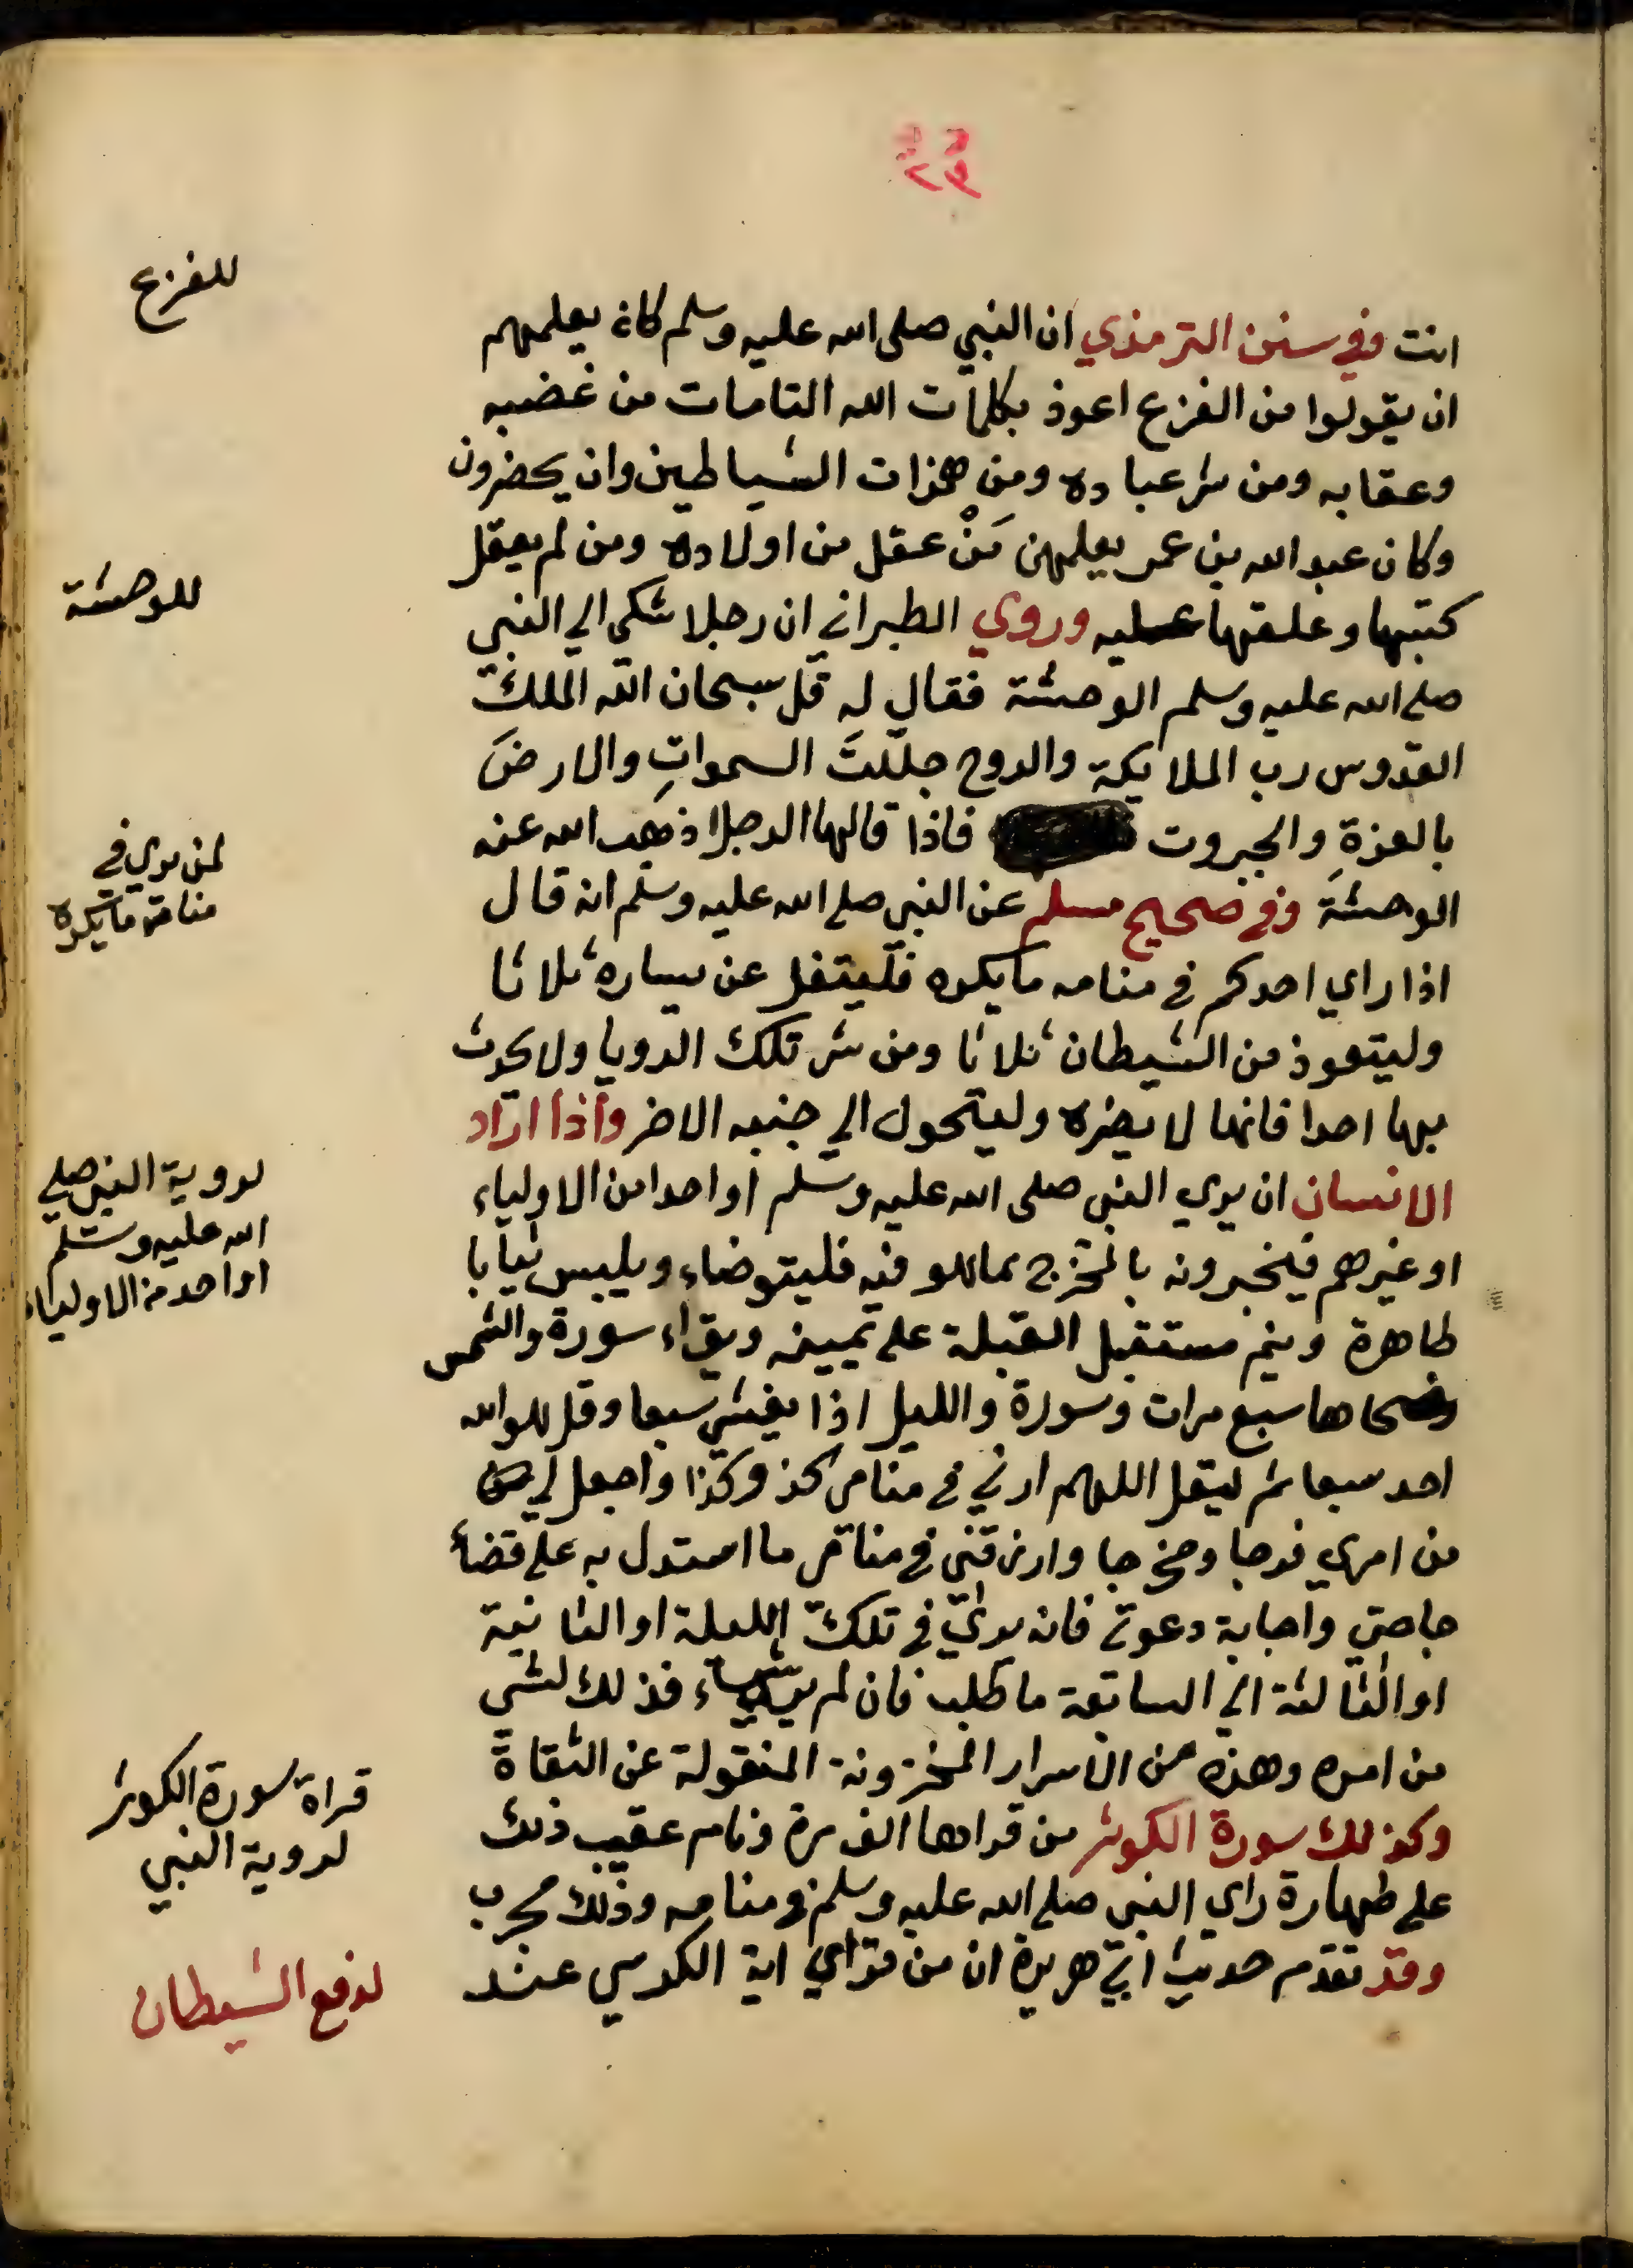 ٢٣
للفزع
انت وفي سنن الترمذي ان النبي صلى الله عليه وسلم كان يعلمهم
ان يقولوا من الفزع اعوذ بكلمات الله التامات من غضبه
وعقابه ومن شر عباده ومن همزات الشياطين وان يحضرون
وكان عبد الله بن عمر يعلمهن مَنْ عقل من اولاده ومن لم يعقل
للوحشة
كتبها وعلقها عليه وروي الطبراني ان رجلا شكى الي النبي
صلى الله عليه وسلم الوحشة فقال له قل سبحان الله الملك
القدوس رب الملايكة والروح جللتَ السمواتِ والارضَ
بالعزةِ والجبروت فاذا قالها الرجل اذهب الله عنه
لمن يري في
منامه ما يكره
الوحشة وفي صحيح مسلم عن النبي صلى الله عليه وسلم انه قال
اذا راي احدكم في منامه ما يكره فليتفل عن يساره ثلاثا
وليتعوذ من الشيطان ثلاثا ومن شر تلك الرويا ولا يحدث
بها احدا فانها لا يضره وليتحول الي جنبه الاخر واذا اراد
لروية النبي صلي
الله عليه وسلم
او احد من الاولياء
الانسان ان يري النبي صلى الله عليه وسلم او احدا من الاولياء
او غيرهم فيخبرونه بالمخرج مما هو فيه فليتوضاء ويلبس ثيابا
طاهرة وينم مستقبل القبلة على يمينه ويقراء سورة والشمس
وضحاها سبع مرات وسورة والليل اذا يغشي سبعا وقل هو الله
احد سبعا ثم ليقل اللهم ارني في منامي كذ وكذا واجعل لي
من امري فرجا ومخرجا وارزقني في منامي ما استدل به على قضاء
حاجتي واجابة دعوتي فانه يري في تلك الليلة او الثانية
او الثالثة الي السابعة ما طلب فان لم ير شياء فذلك لشي
من امره وهذه من الاسرار المخزونة المنقولة عن الثقاة
قراة سورة الكوثر
لروية النبي
وكذلك سورة الكوثر من قراها الف مرة ونام عقيب ذلك
على طهارة راي النبي صلى الله عليه وسلم في منامه وذلك مجرب
لدفع الشيطان
وقد تقدم حديث ابي هريرة ان من قراي اية الكرسي عند